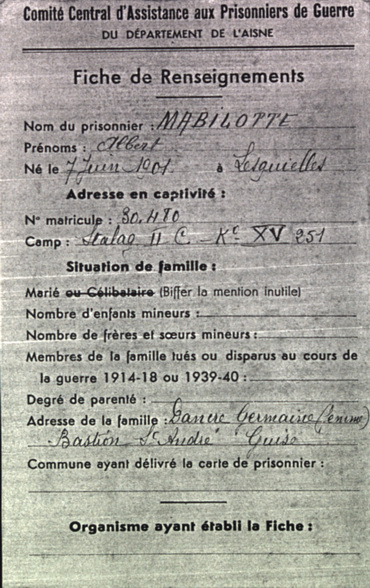 Comité Central d'Assistance aux Prisonniers de Guerre
DU DÉPARTEMENT DE L'AISNE
Fiche de Renseignements
Nom du prisonnier : MABILOTTE
Prénoms : Albert
Né le 7 Juin 1901 à Lesquielles
Adresse en captivité :
N° matricule : 80.480
Camp : Stalag II C - Kº XV 251
Situation de famille :
Marié ou Célibataire (Biffer la mention inutile)
Nombre d'enfants mineurs :
Nombre de frères et sœurs mineurs :
Membres de la famille tués ou disparus au cours de
la guerre 1914-18 ou 1939-40 :
Degré de parenté :
Adresse de la famille : Dancre Germaine
Bastion St André Guise
Commune ayant délivré la carte de prisonnier :
Organisme ayant établi la Fiche :